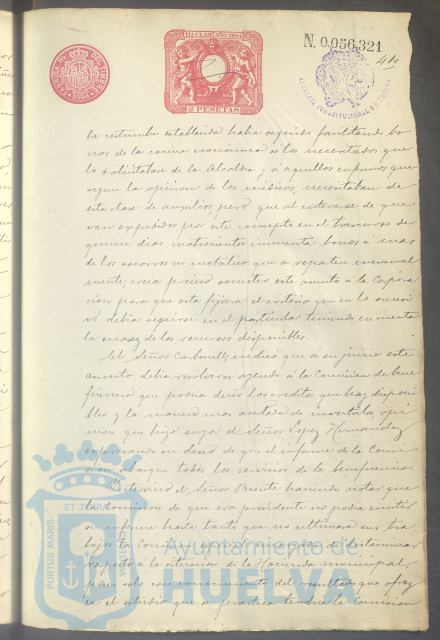 11ª CLASE AÑO 1894
2 PESETAS
N. 0,056,321
410
la costumbre establecida habia seguido facilitando bo
nos de la cocina económica á los necesitados que
lo solicitaban de la Alcaldia y á aquellos enfermos que
segun la opinion de los médicos necesitaban de
esta clase de auxilios pero que al enterarse de que
van expedidos por este concepto en el trascurso de
quince dias cuatrocientos cincuenta bonos á mas
de los socorros en metálico que se reparten
mente, creia preciso someter este asunto á la Corpora
cion para que esta fijara el criterio que en lo sucesi
vo debia seguirse en el particular teniendo en cuenta
la escasez de los recursos disponibles.
El Señor Carbonell indicó que á su juicio este
asunto debia resolverse oyendo á la Comision de bene
ficencia que podria decir los creditos que hay disponi
bles y la manera mas acertada de invertirlos, opi
nion que hizo suya el Señor Lopez Hernandez
expresando su deseo de que el informe de la Comi
sion abarque todos los servicios de la beneficencia.
Intervino el Señor Puente haciendo notar que
la Comision de que era presidente no podia emitir
su informe hasta tanto que no ultimara sus tra
bajos la Comision
respecto á la situacion de la Hacienda municipal,
pues solo con conocimiento del resultado que ofrez
ca el estudio que se practica tendria la Comision
PORTUS MARIS
ET TERRÆ
Ayuntamiento de
HUELVA